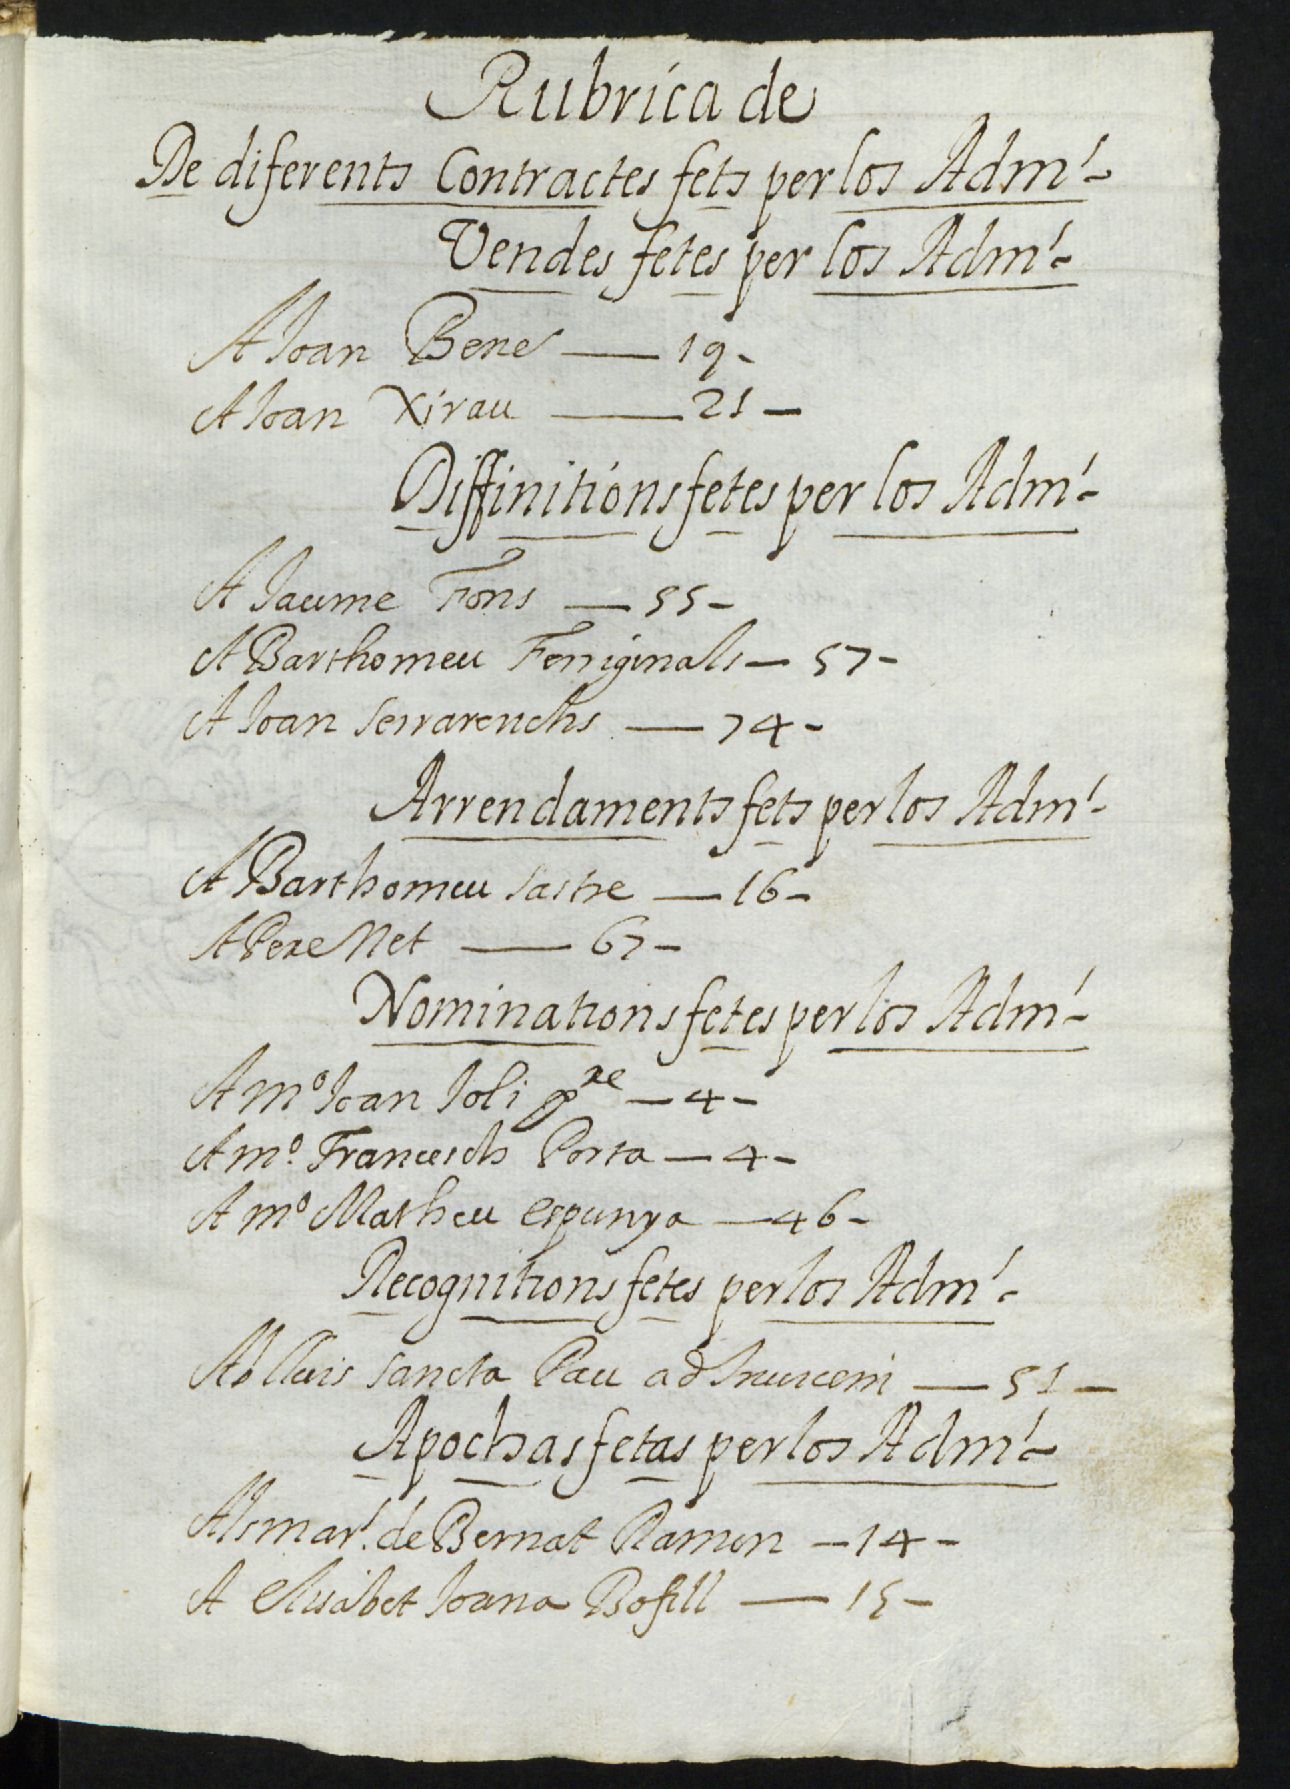 Rubrica de
De diferents Contractes fets per los Adm.ʳˢ
Vendes fetes per los Adm.ʳˢ
A Joan Bene — 19 -
A Joan Xirau — 21 —
Diffinitions fetes per los Adm.ʳˢ
A Jaume Fons — 55 -
A Barthomeu Ferriginals — 57 -
A Joan Serrarenchs — 74 -
Arrendaments fets per los Adm.ʳˢ
A Barthomeu Sastre — 16 -
A Pere Net — 67 -
Nominations fetes per los Adm.ʳˢ
A mº Joan Joli pre — 4 -
A mº. Francesch Porta — 4 -
A mº Matheu Espunya — 46 -
Recognitions fetes per los Adm.ʳˢ
Lluis Sancta Pau ad — 51 —
Apochas fetas per los Adm.ʳˢ
Als mar.ˢ de Bernat Ramon — 14 -
A Elisabet Joana Bofill — 15 -